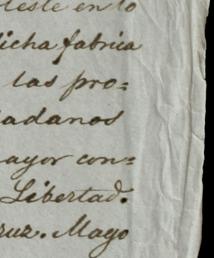 teste en lo
dicha fabrica
las pro=
dadanos
mayor con=
Libertad.
ruz. Mayo